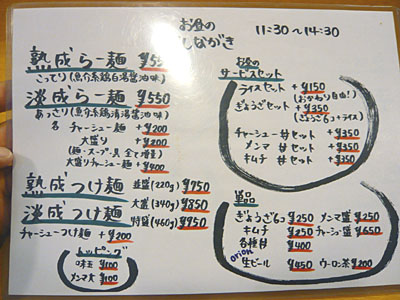 お昼の
しながき
11:30～14:30
熟成らー麺 ¥550
こってり(魚介系鶏白湯醤油味)
淡成らー麺 ¥550
あっさり(魚介系鶏清湯醤油味)
各 チャーシュー麺 +¥200
大盛り +¥200
(麺・スープ・具 全て増量)
大盛りチャーシュー麺 +¥400
熟成つけ麺 並盛(220g) ¥750
淡成つけ麺 大盛(340g) ¥850
特盛(460g) ¥950
チャーシューつけ麺 +¥200
トッピング
味玉 ¥100
メンマ大 ¥100
お昼の
サービスセット
ライスセット +¥150
(おかわり自由!)
ぎょうざセット +¥350
(ぎょうざ6コ+ライス)
チャーシュー丼セット +¥350
メンマ 丼セット +¥350
キムチ 丼セット +¥350
単品
ぎょうざ6コ ¥250
メンマ盛 ¥250
キムチ ¥250
チャーシュー盛 ¥650
各種丼 ¥400
orion
生ビール ¥450
ウーロン茶 ¥200